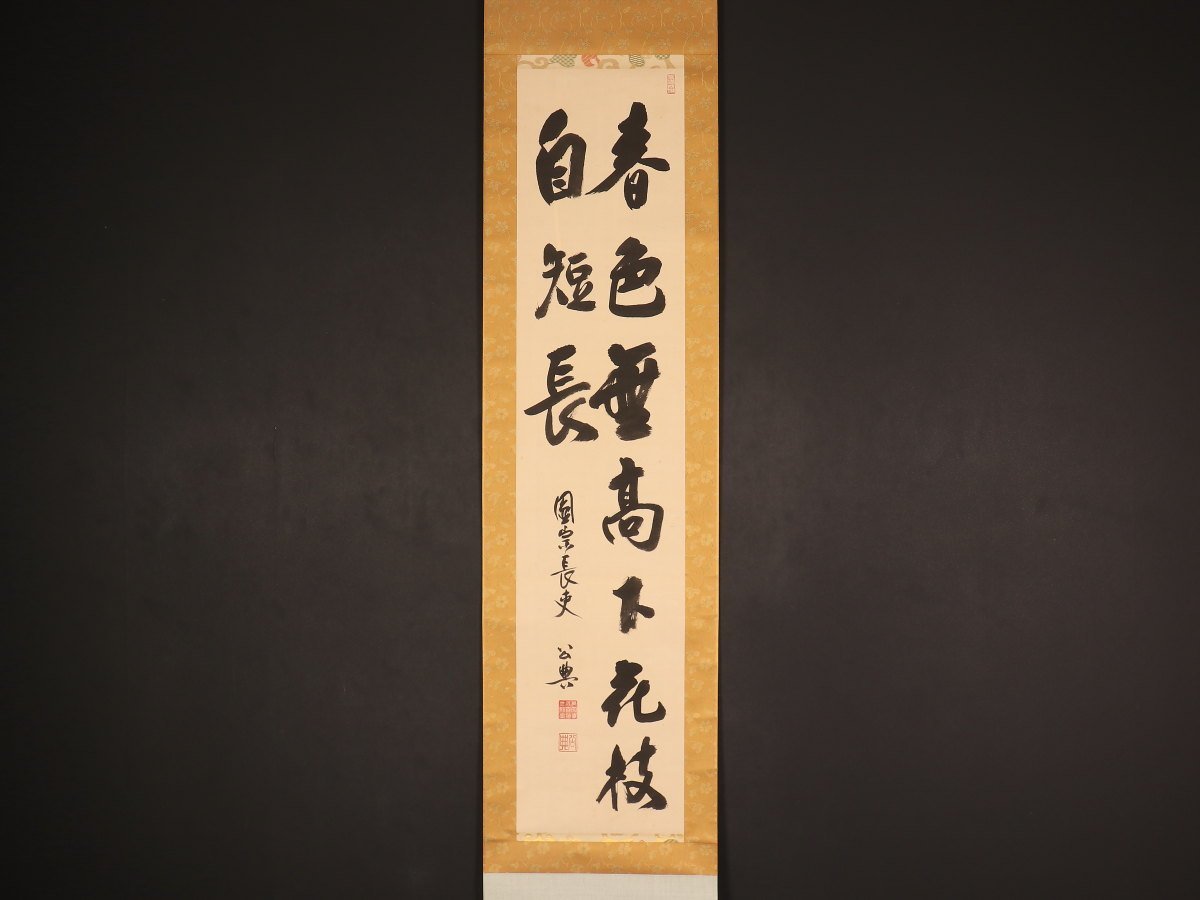 春色無高下花枝
自短長
園宗長吏 公典